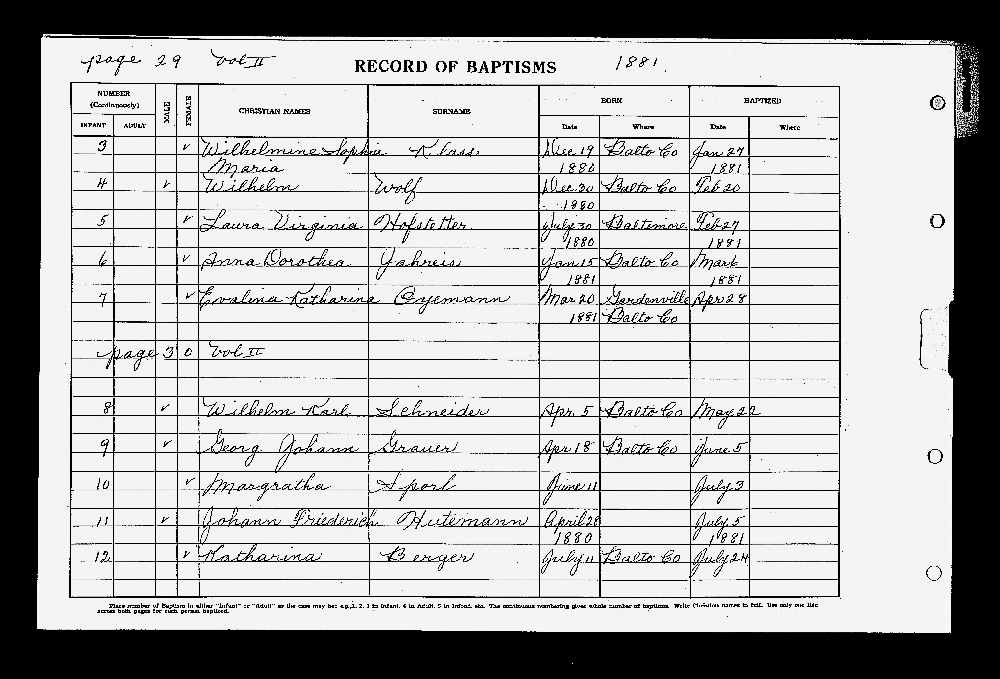 page 29 Vol II RECORD OF BAPTISMS 1881
NUMBER (Continuously) MALE FEMALE CHRISTIAN NAMES SURNAME BORN BAPTIZED
INFANT ADULT Date Where Date Where
3 ✓ Wilhelmine Sophia Klass Dec 19 Balto Co Jan 27
Maria 1880 1881
4 ✓ Wilhelm Wolf Dec 30 Balto Co Feb 20
1880
5 ✓ Laura Virginia Hofstetter July 30 Baltimore Feb 27
1880 1881
6 ✓ Anna Dorothea Jahreis Jan 15 Balto Co Mar 6
1881 1881
7 ✓ Evalina Katharina Oyemann Mar 20 Gardenville Apr 28
1881 Balto Co
page 30 Vol II
8 ✓ Wilhelm Karl Schneider Apr. 5 Balto Co May 22
9 ✓ Georg Johann Grauer Apr 18 Balto Co June 5
10 ✓ Margratha Sporl June 11 July 3
11 ✓ Johann Friederich Hutemann April 28 July 5
1880 1881
12 ✓ Katharina Berger July 11 Balto Co July 24
Place number of Baptism in either "Infant" or "Adult" as the case may be: e.g., 1, 2, 3 in Infant, 4 in Adult, 5 in Infant, etc. The continuous numbering gives whole number of baptisms. Write Christian names in full. Use only one line
across both pages for each person baptized.